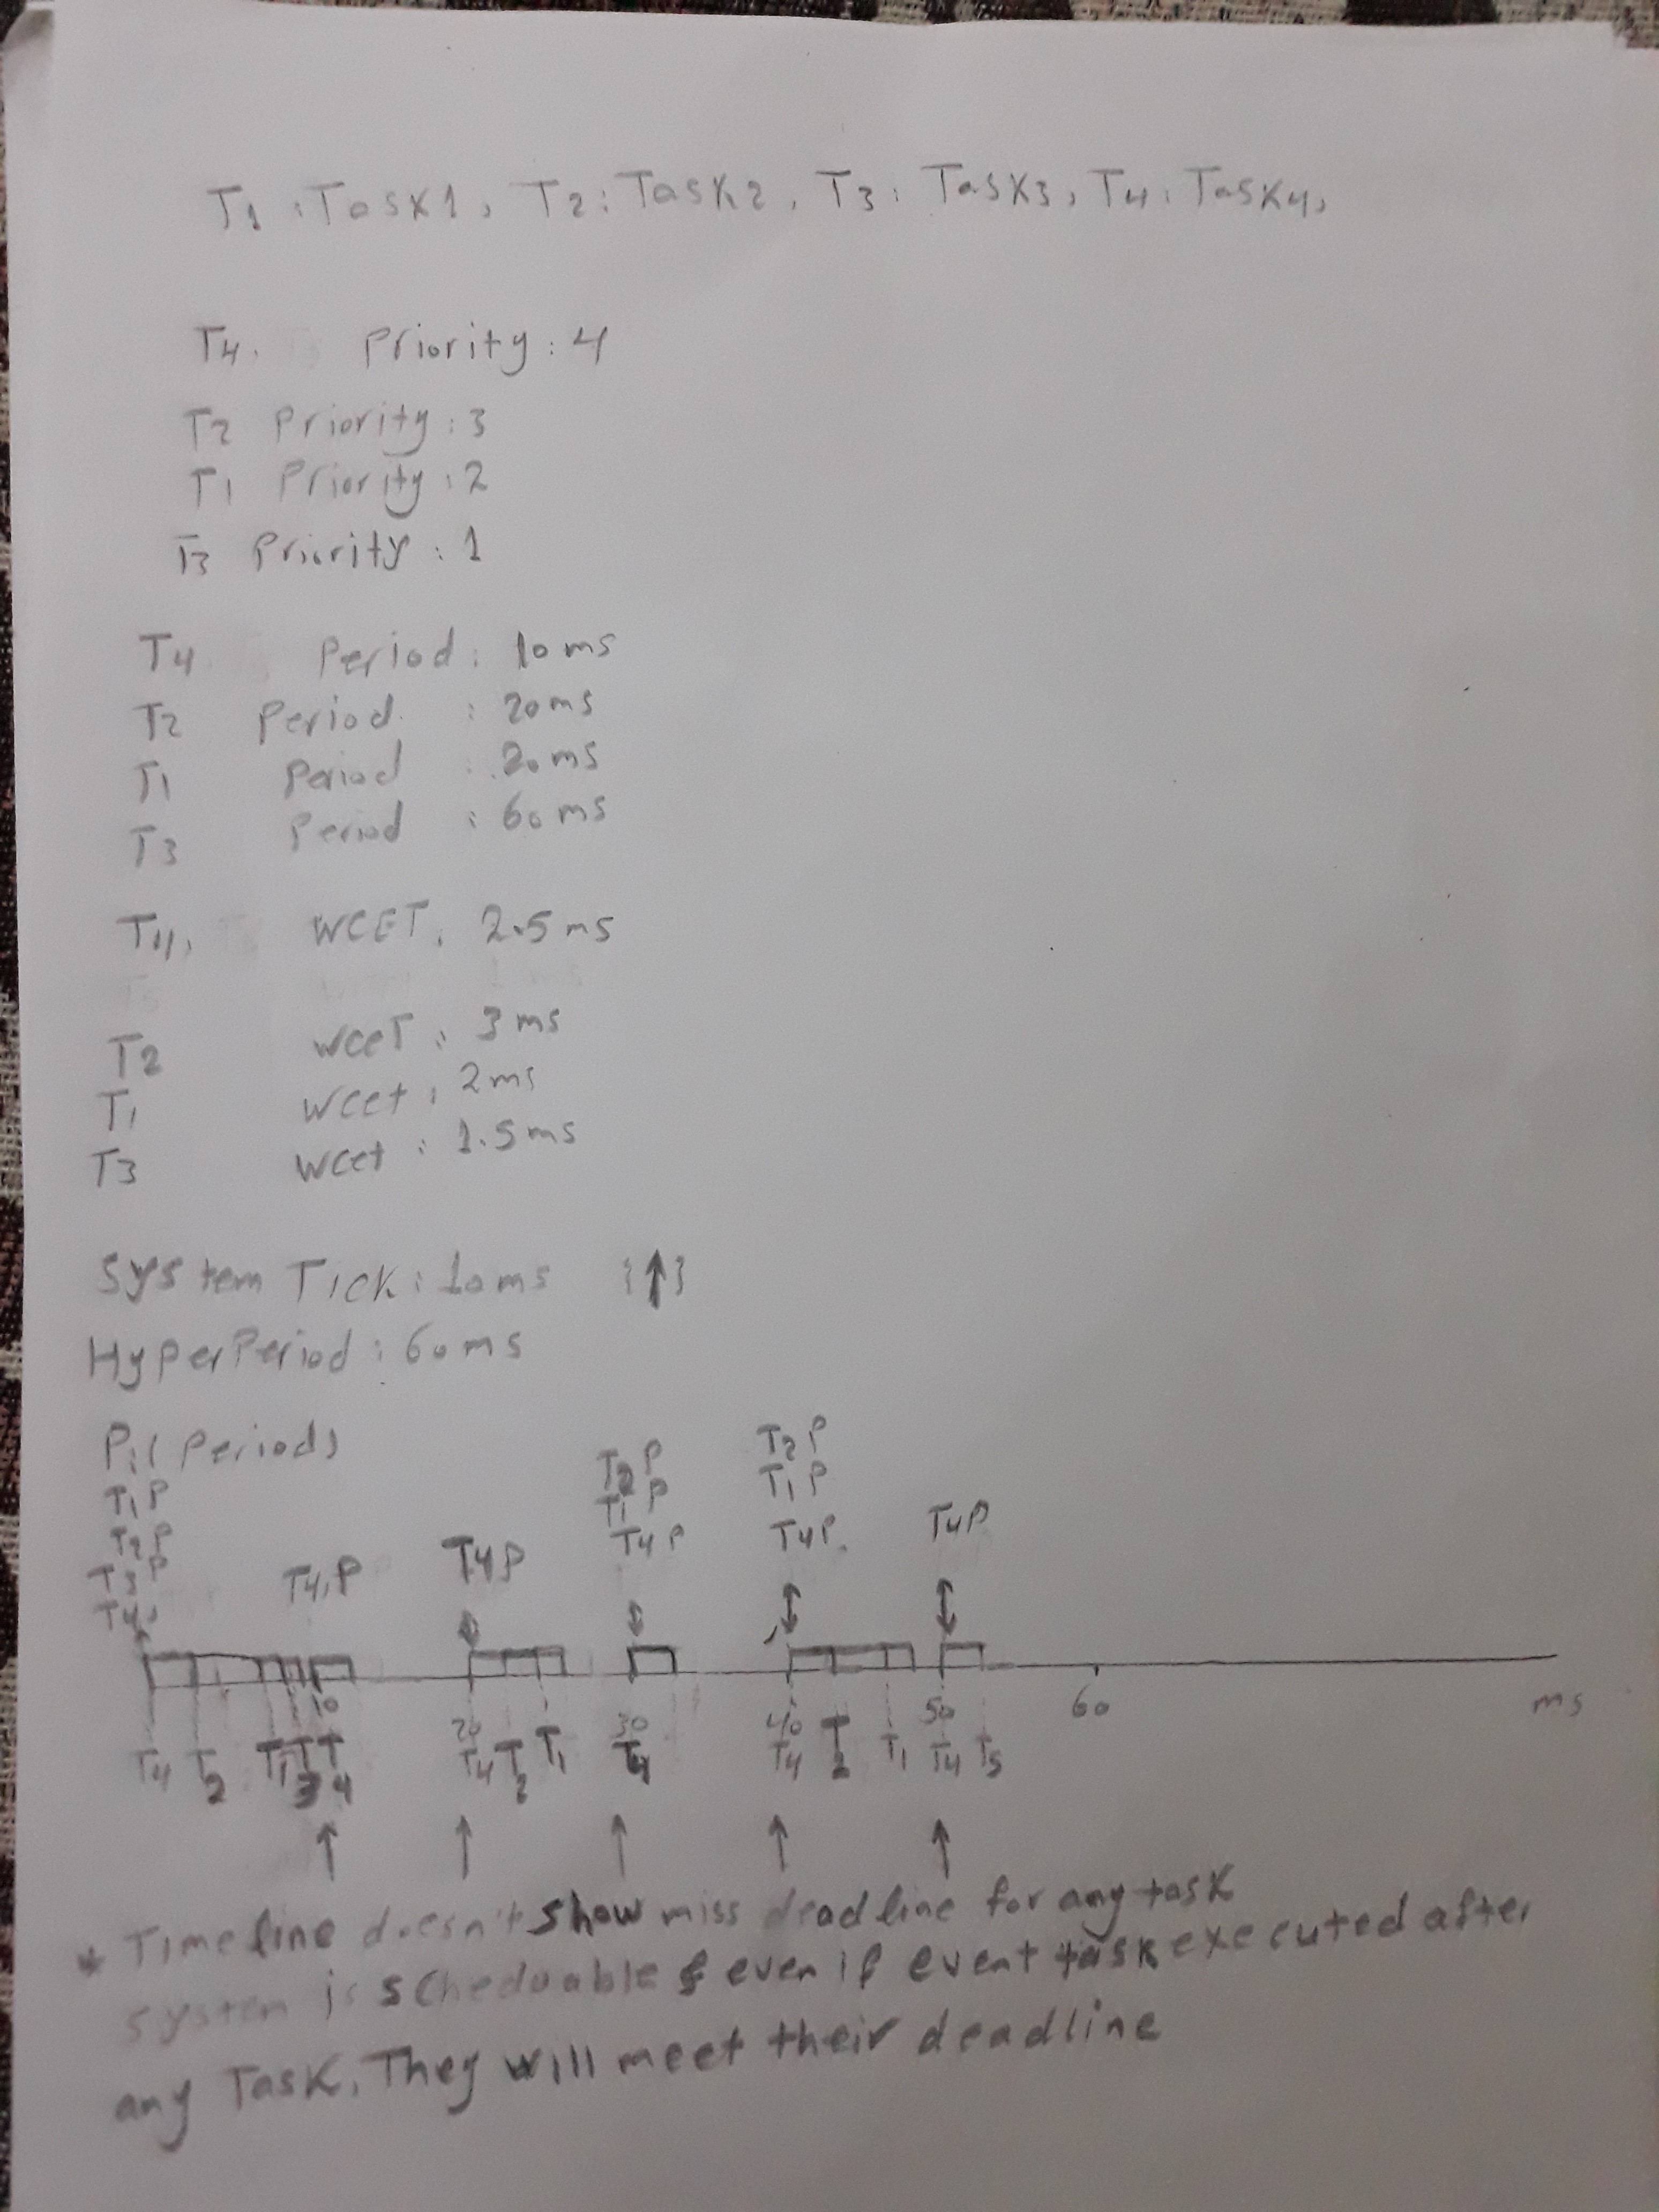 T1 : Task1, T2 : Task2, T3 : Task3, T4 : Task4,
T4. Priority : 4
T2 Priority : 3
T1 Priority : 2
T3 Priority : 1
T4 Period : 10ms
T2 Period : 20ms
T1 Period : 20ms
T3 Period : 60ms
T4, WCET, 2.5ms
T2 WCET : 3ms
T1 Wcet : 2ms
T3 Wcet : 1.5ms
System Tick : 10ms {↑}
HyperPeriod : 60ms
P:( Periods
T1 P
T2 P
T3 P
T4
T4,P
T4P
T2 P
T1 P
T4 P
T2 P
T1 P
T4P.
T4P
10 20 30 40 50 60 ms
T4 T2 T1 T3 T4 T4 T2 T1 T4 T4 T2 T1 T4 T5
↑ ↑ ↑ ↑ ↑
* Timeline doesn't show miss deadline for any task
system is scheduable & even if event task executed after
any Task, They will meet their deadline